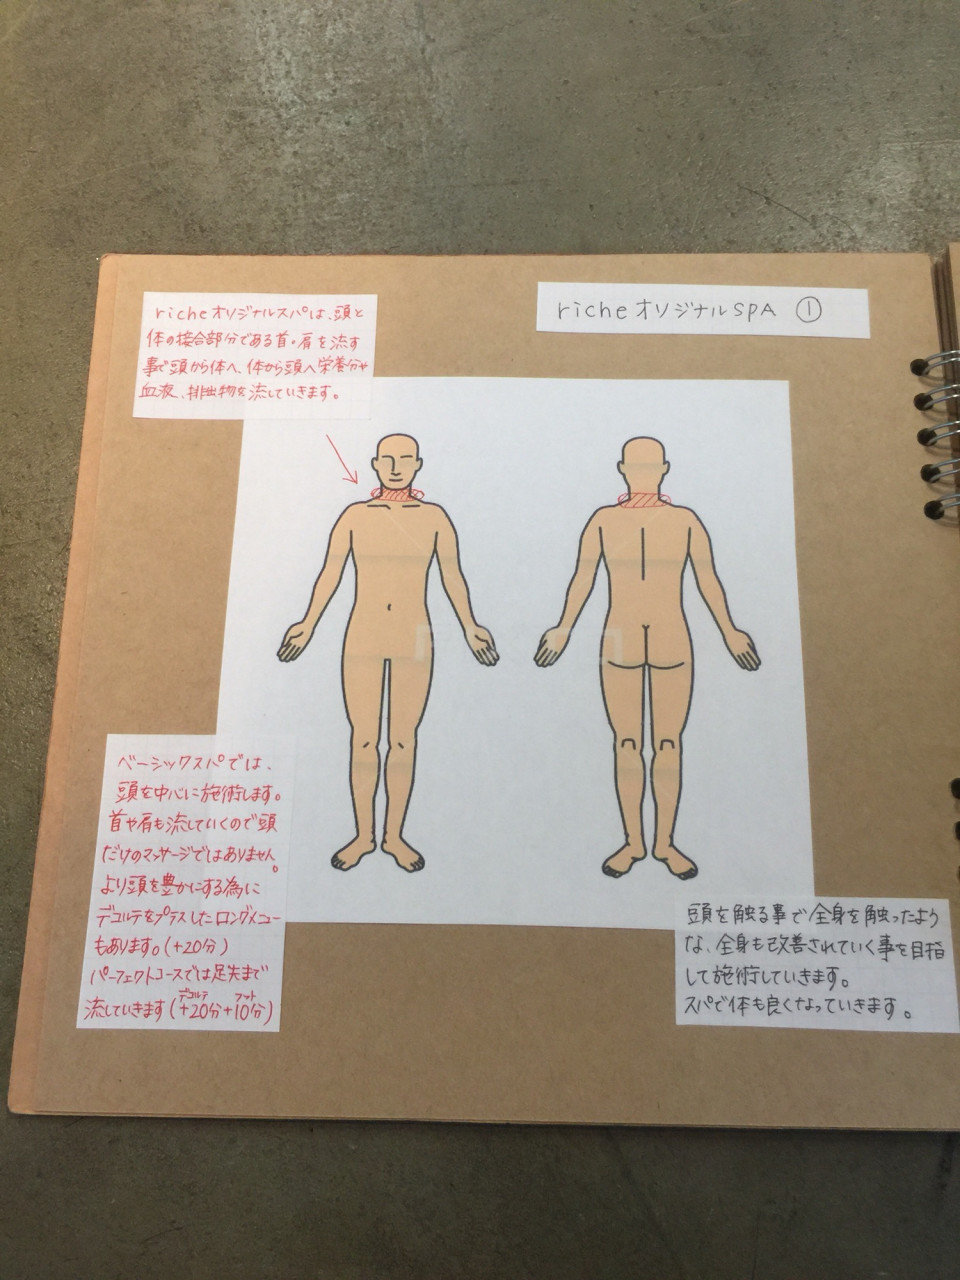 riche オリジナル SPA ①
riche オリジナルスパは、頭と
体の接合部分である首・肩を流す
事で頭から体へ、体から頭へ栄養分や
血液、排出物を流していきます。
ベーシックスパでは、
頭を中心に施術します。
首や肩も流していくので頭
だけのマッサージではありません。
より頭を豊かにする為に
デコルテをプラスしたロングメニュー
もあります。(+20分)
パーフェクトコースでは足先まで
デコルテ フット
流していきます(+20分+10分)
頭を触る事で全身を触ったよう
な、全身も改善されていく事を目指
して施術していきます。
スパで体も良くなっていきます。